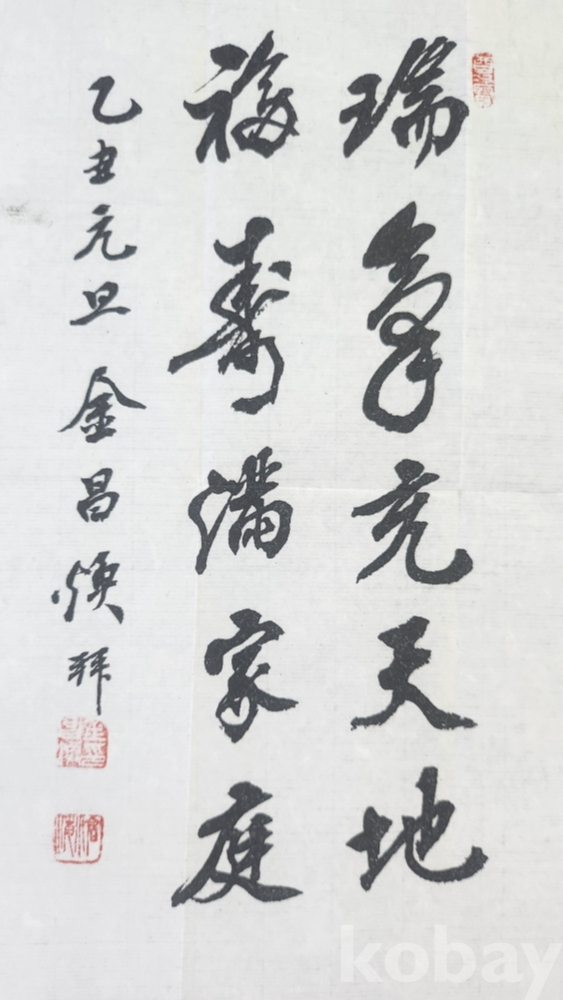 瑞氣充天地
福壽滿家庭
乙丑元旦 金昌煥拜
kobay